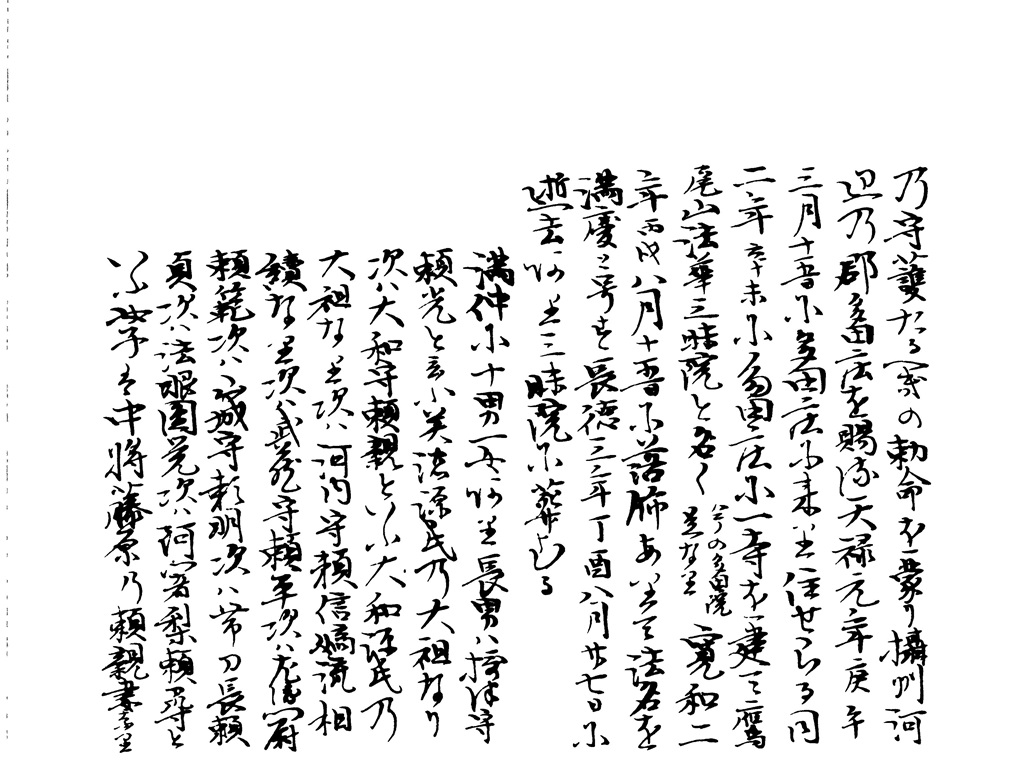 乃守護たる家の勅命を蒙り攝州河
辺乃郡多田庄を賜る天禄元年庚午
三月十五日尓多田庄尓来り住せらる同
二年辛未尓多田庄尓一寺を建て鷹
尾山法華三昧院と名く 今の多田院是なり 寛和二
年丙戌八月十五日尓落飾ありて法名を
満慶と号す長徳三年丁酉八月廿七日尓
逝去阿り三昧院尓葬むる
満仲尓十男一女阿り長男ハ摂津守
頼光と云ふ美濃源氏乃大祖なり
次ハ大和守頼親といふ大和源氏乃
大祖なり次ハ河内守頼信嫡流相
續なり次ハ武蔵守頼平次ハ左衛門尉
頼範次ハ 城守頼明次ハ帯刀長頼
貞次ハ法眼圓覚次ハ阿闍梨頼尋と
いふ女子は中将藤原乃頼親妻なり